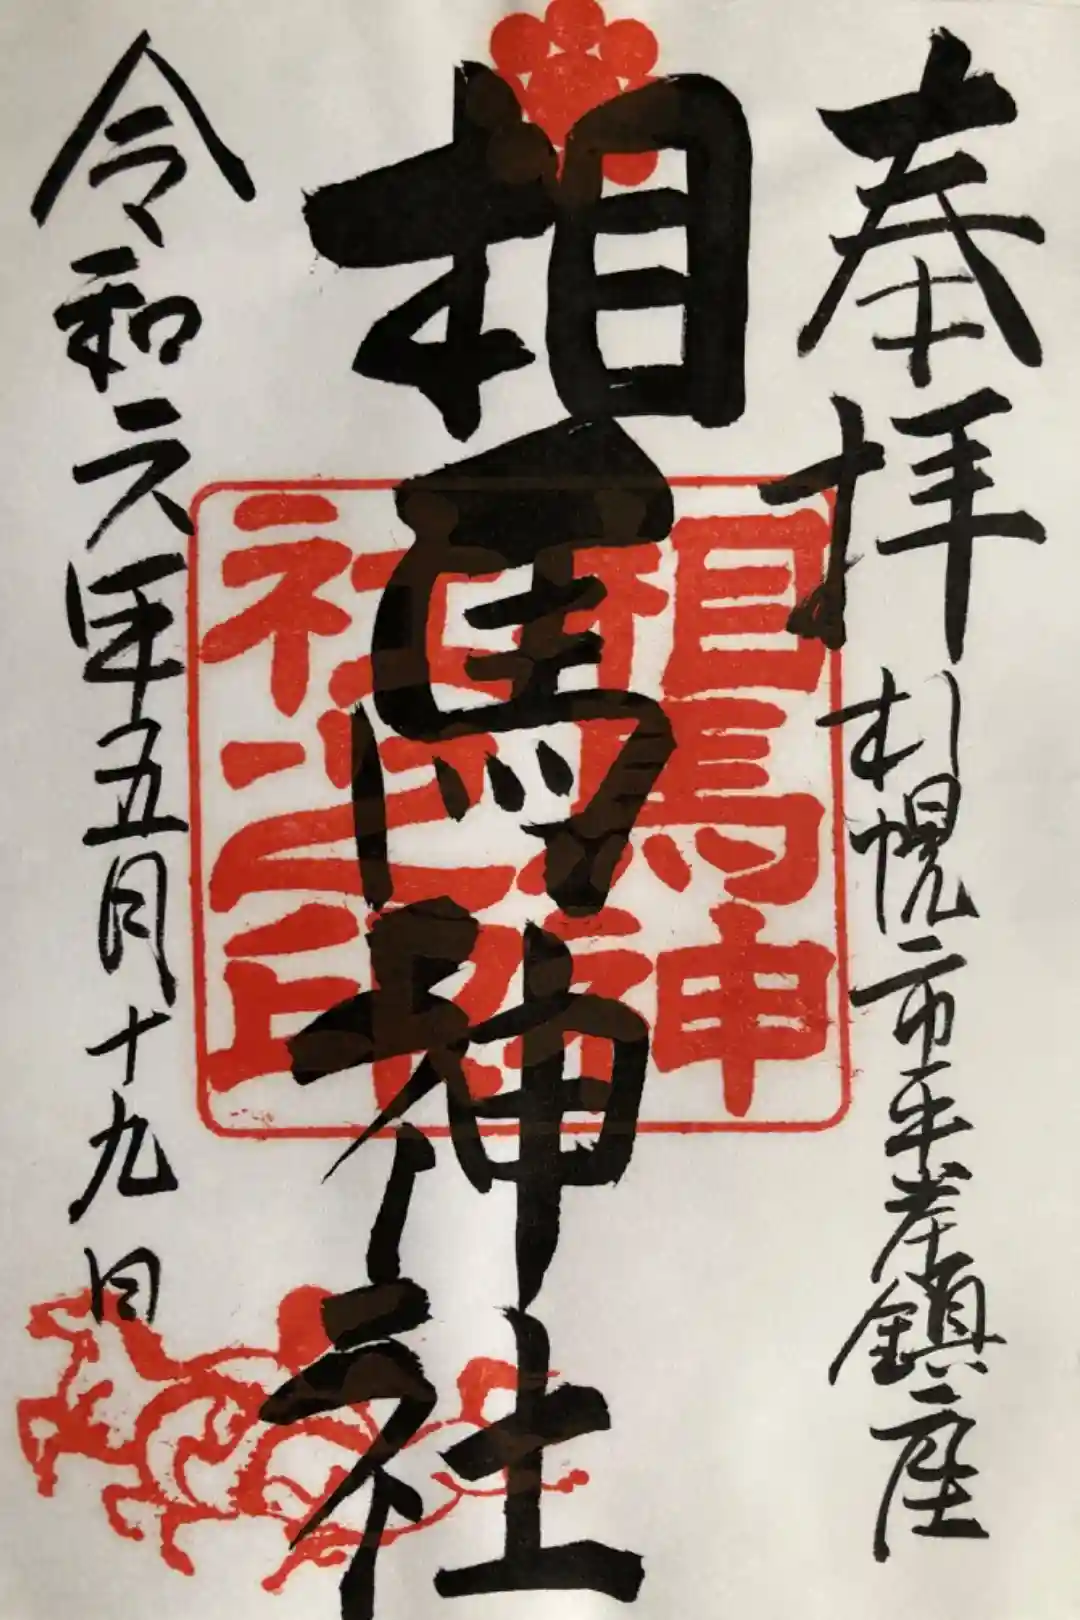 奉拝
札幌市平岸鎮座
相馬神社
相馬神
社之印
令和六年五月十九日